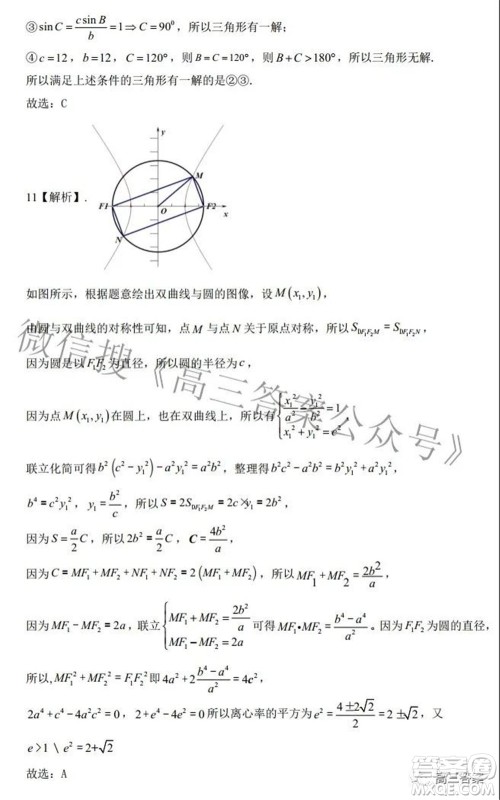 ③sinC=csinB/b=1⇒C=90°，所以三角形有一解；
④c=12，b=12，C=120°，则B=120°，则B+C>180°，所以三角形无解.
所以满足上述条件的三角形有一解的是②③.
故选：C
11【解析】.
y
M
F1
O
F2
x
N
如图所示，根据题意绘出双曲线与圆的图像，设M(x₁,y₁)，
由圆与双曲线的对称性可知，点M与点N关于原点对称，所以S_{DF₁F₂M}=S_{DF₁F₂N}，
因为圆是以F₁F₂为直径，所以圆的半径为c，
因为点M(x₁,y₁)在圆上，也在双曲线上，所以有{x₁²/a²-y₁²/b²=1，x₁²+y₁²=c²
联立化简可得b²(c²-y₁²)-a²y₁²=a²b²，整理得b²c²-a²b²=b²y₁²+a²y₁²，
b⁴=c²y₁²，y₁=b²/c，所以S=2S_{DF₁F₂M}=2c×y₁=2b²，
因为S=a/2 C，所以2b²=a/2 C，C=4b²/a，
因为C=MF₁+MF₂+NF₁+NF₂=2(MF₁+MF₂)，所以MF₁+MF₂=2b²/a，
因为MF₁-MF₂=2a，联立{MF₁+MF₂=2b²/a MF₁-MF₂=2a 可得MF₁•MF₂=(b⁴-a⁴)/a²。因为F₁F₂为圆的直径，
所以，MF₁²+MF₂²=F₁F₂²即4a²+2(b⁴-a⁴)/a²=4c²，
2a⁴+c⁴-4a²c²=0，2+e⁴-4e²=0所以离心率的平方为e²=(4±2√2)/2=2±√2，又
e>1\e²=2+√2
故选：A
微信搜《高三答案公众号》
高三答案